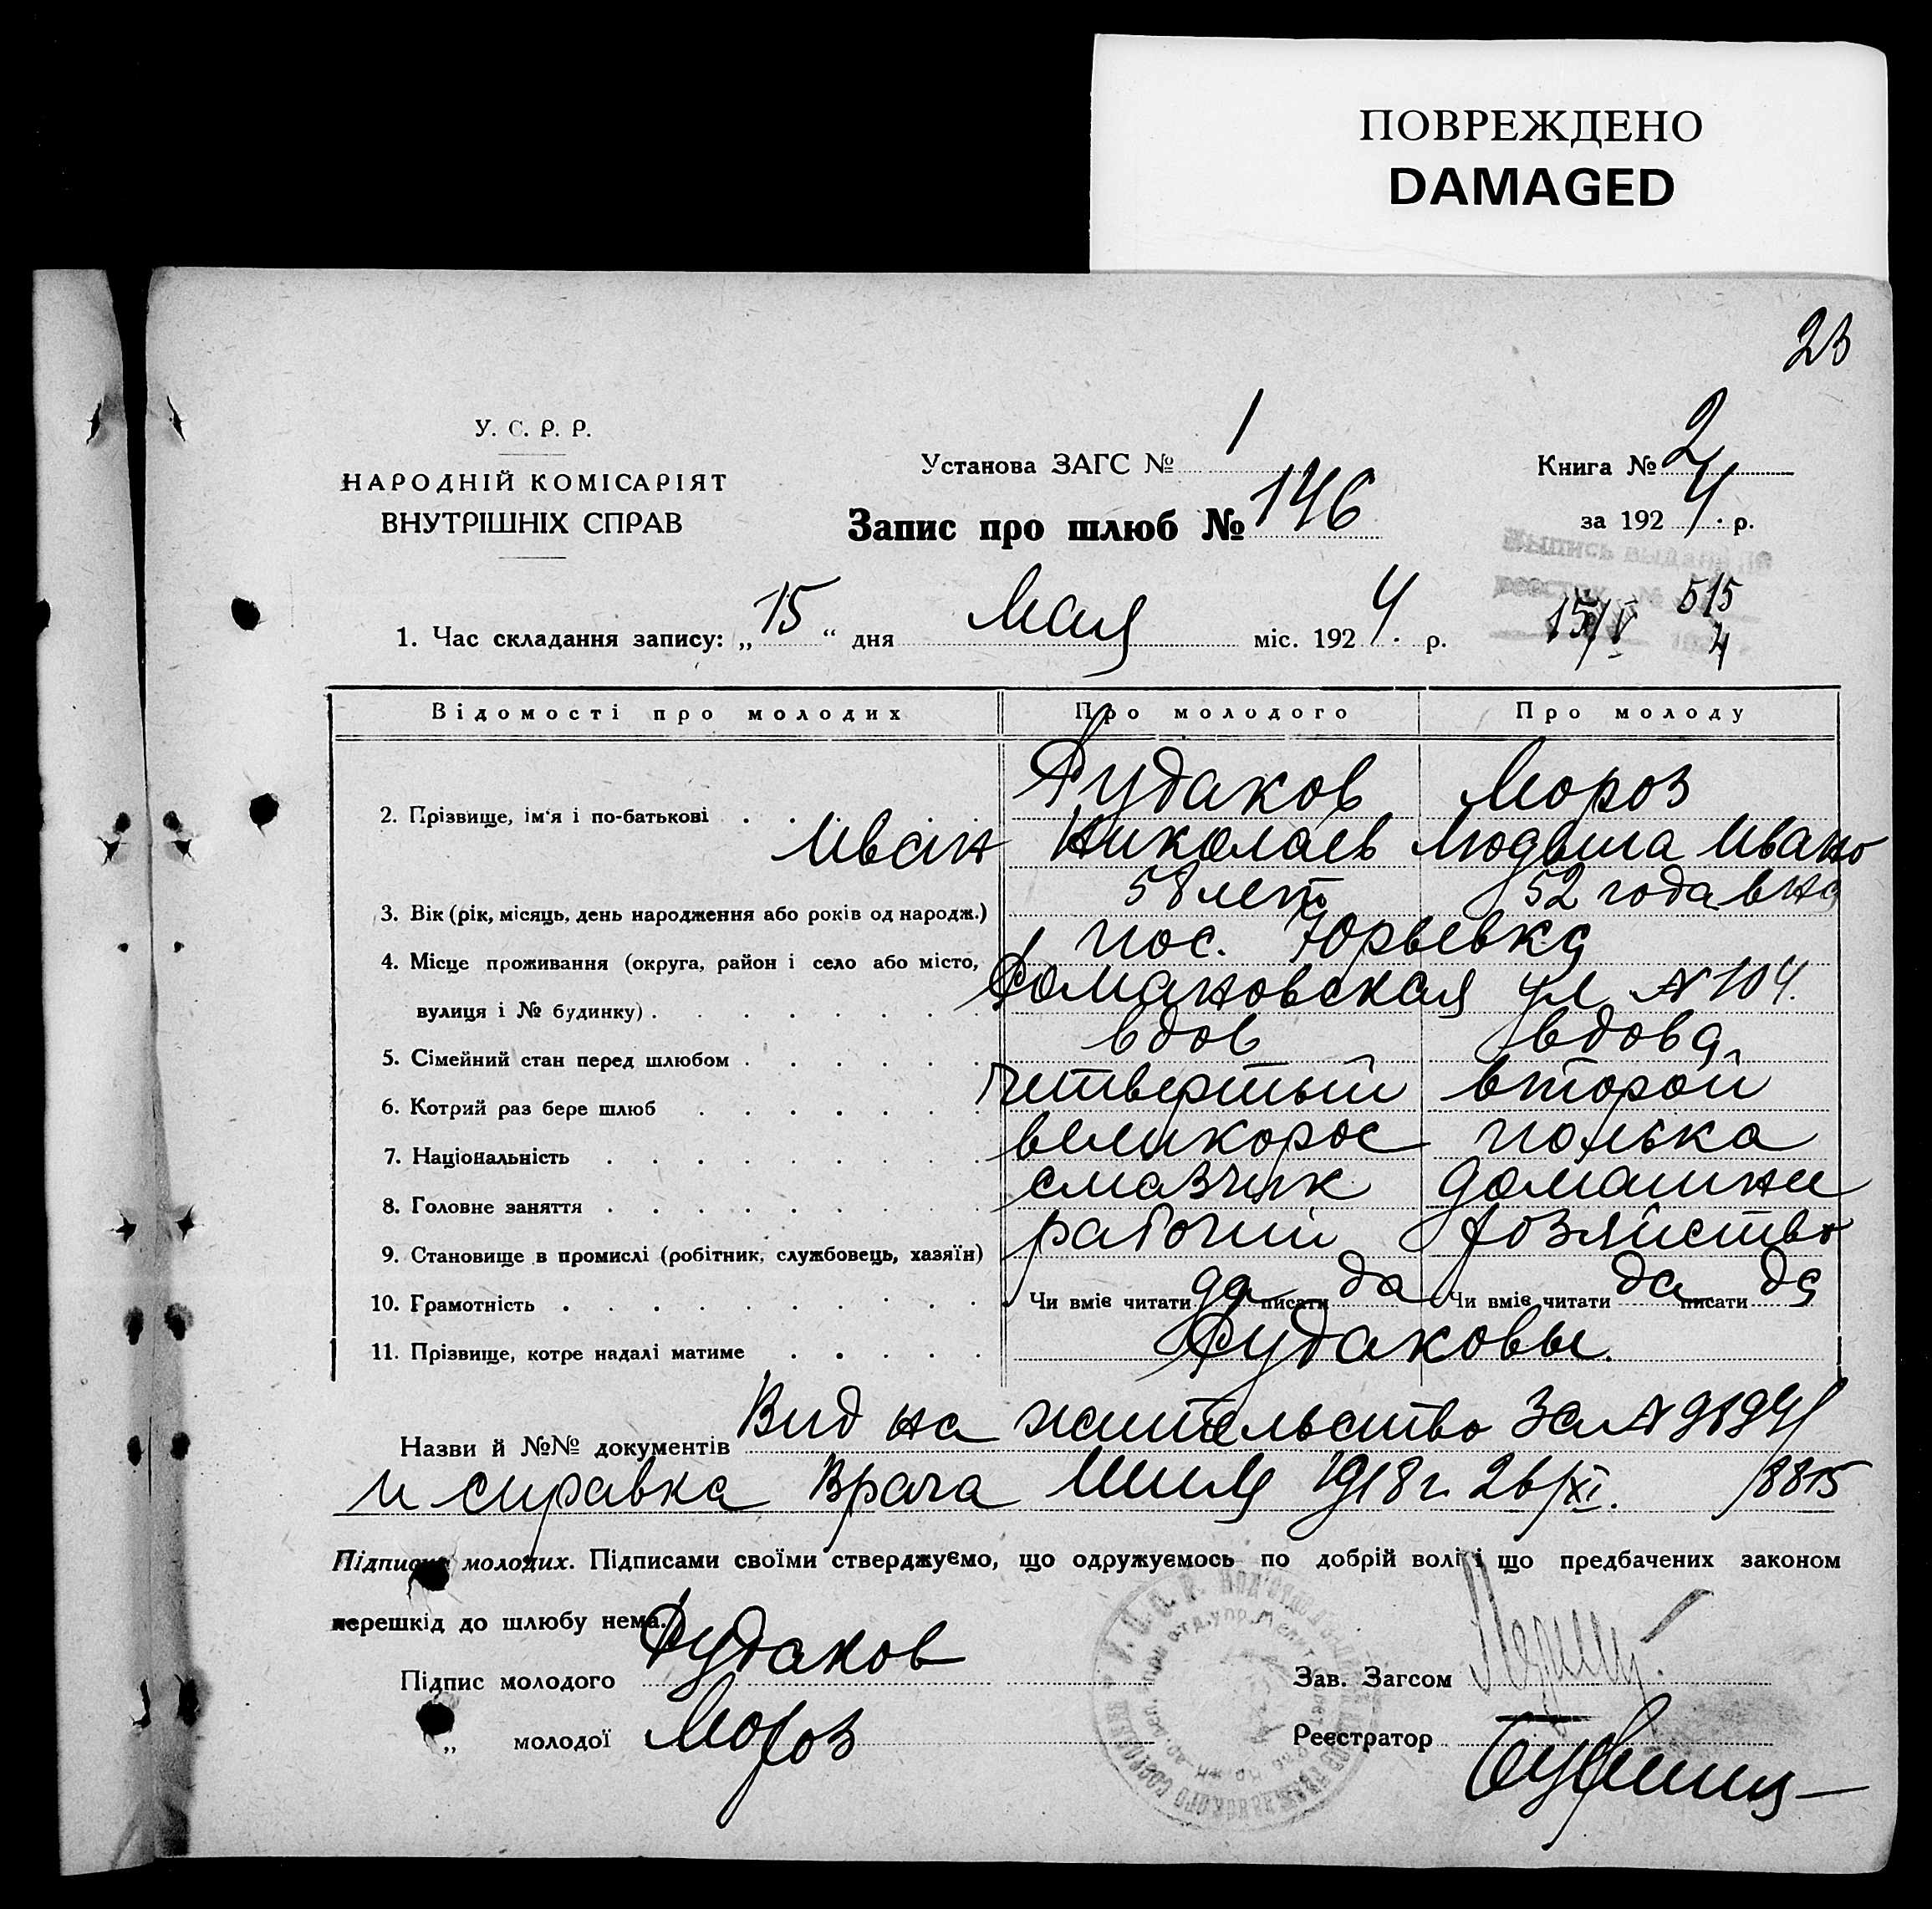 ПОВРЕЖДЕНО
DAMAGED
23
У. С. Р. Р.
НАРОДНІЙ КОМІСАРІЯТ
ВНУТРІШНІХ СПРАВ
Установа ЗАГС № 1
Книга № 2
Запис про шлюб № 146
за 1924 р.
Выпись выдана по
реестру № 515
15/V 4
1. Час складання запису: „15“ дня Мая міс. 1924 р.
Відомості про молодих Про молодого Про молоду
Рудаков Мороз
2. Прізвище, ім'я і по-батькові Иван Николаев Людвига Ивано
вна
3. Вік (рік, місяць, день народження або років од народж.) 58 лет 52 года
4. Місце проживання (округа, район і село або місто, пос. Юрьевка
вулиця і № будинку) Романовская ул № 104.
5. Сімейний стан перед шлюбом вдов вдова
6. Котрий раз бере шлюб четвертый второй
7. Національність великорос полька
8. Головне заняття смазчик домашнее
9. Становище в промислі (робітник, службовець, хазяїн) рабочий хозяйство
10. Грамотність Чи вміє читати да писати да Чи вміє читати да писати да
11. Прізвище, котре надалі матиме Рудаковы.
Назви й №№ документів Вид на жительство за №
и справка Врача 1918 г. 26/XI. 8815
Підписи молодих. Підписами своїми стверджуємо, що одружуємось по добрій волі і що предбачених законом
перешкід до шлюбу нема.
Підпис молодого Рудаков
Зав. Загсом
„ молодої Мороз
Реєстратор